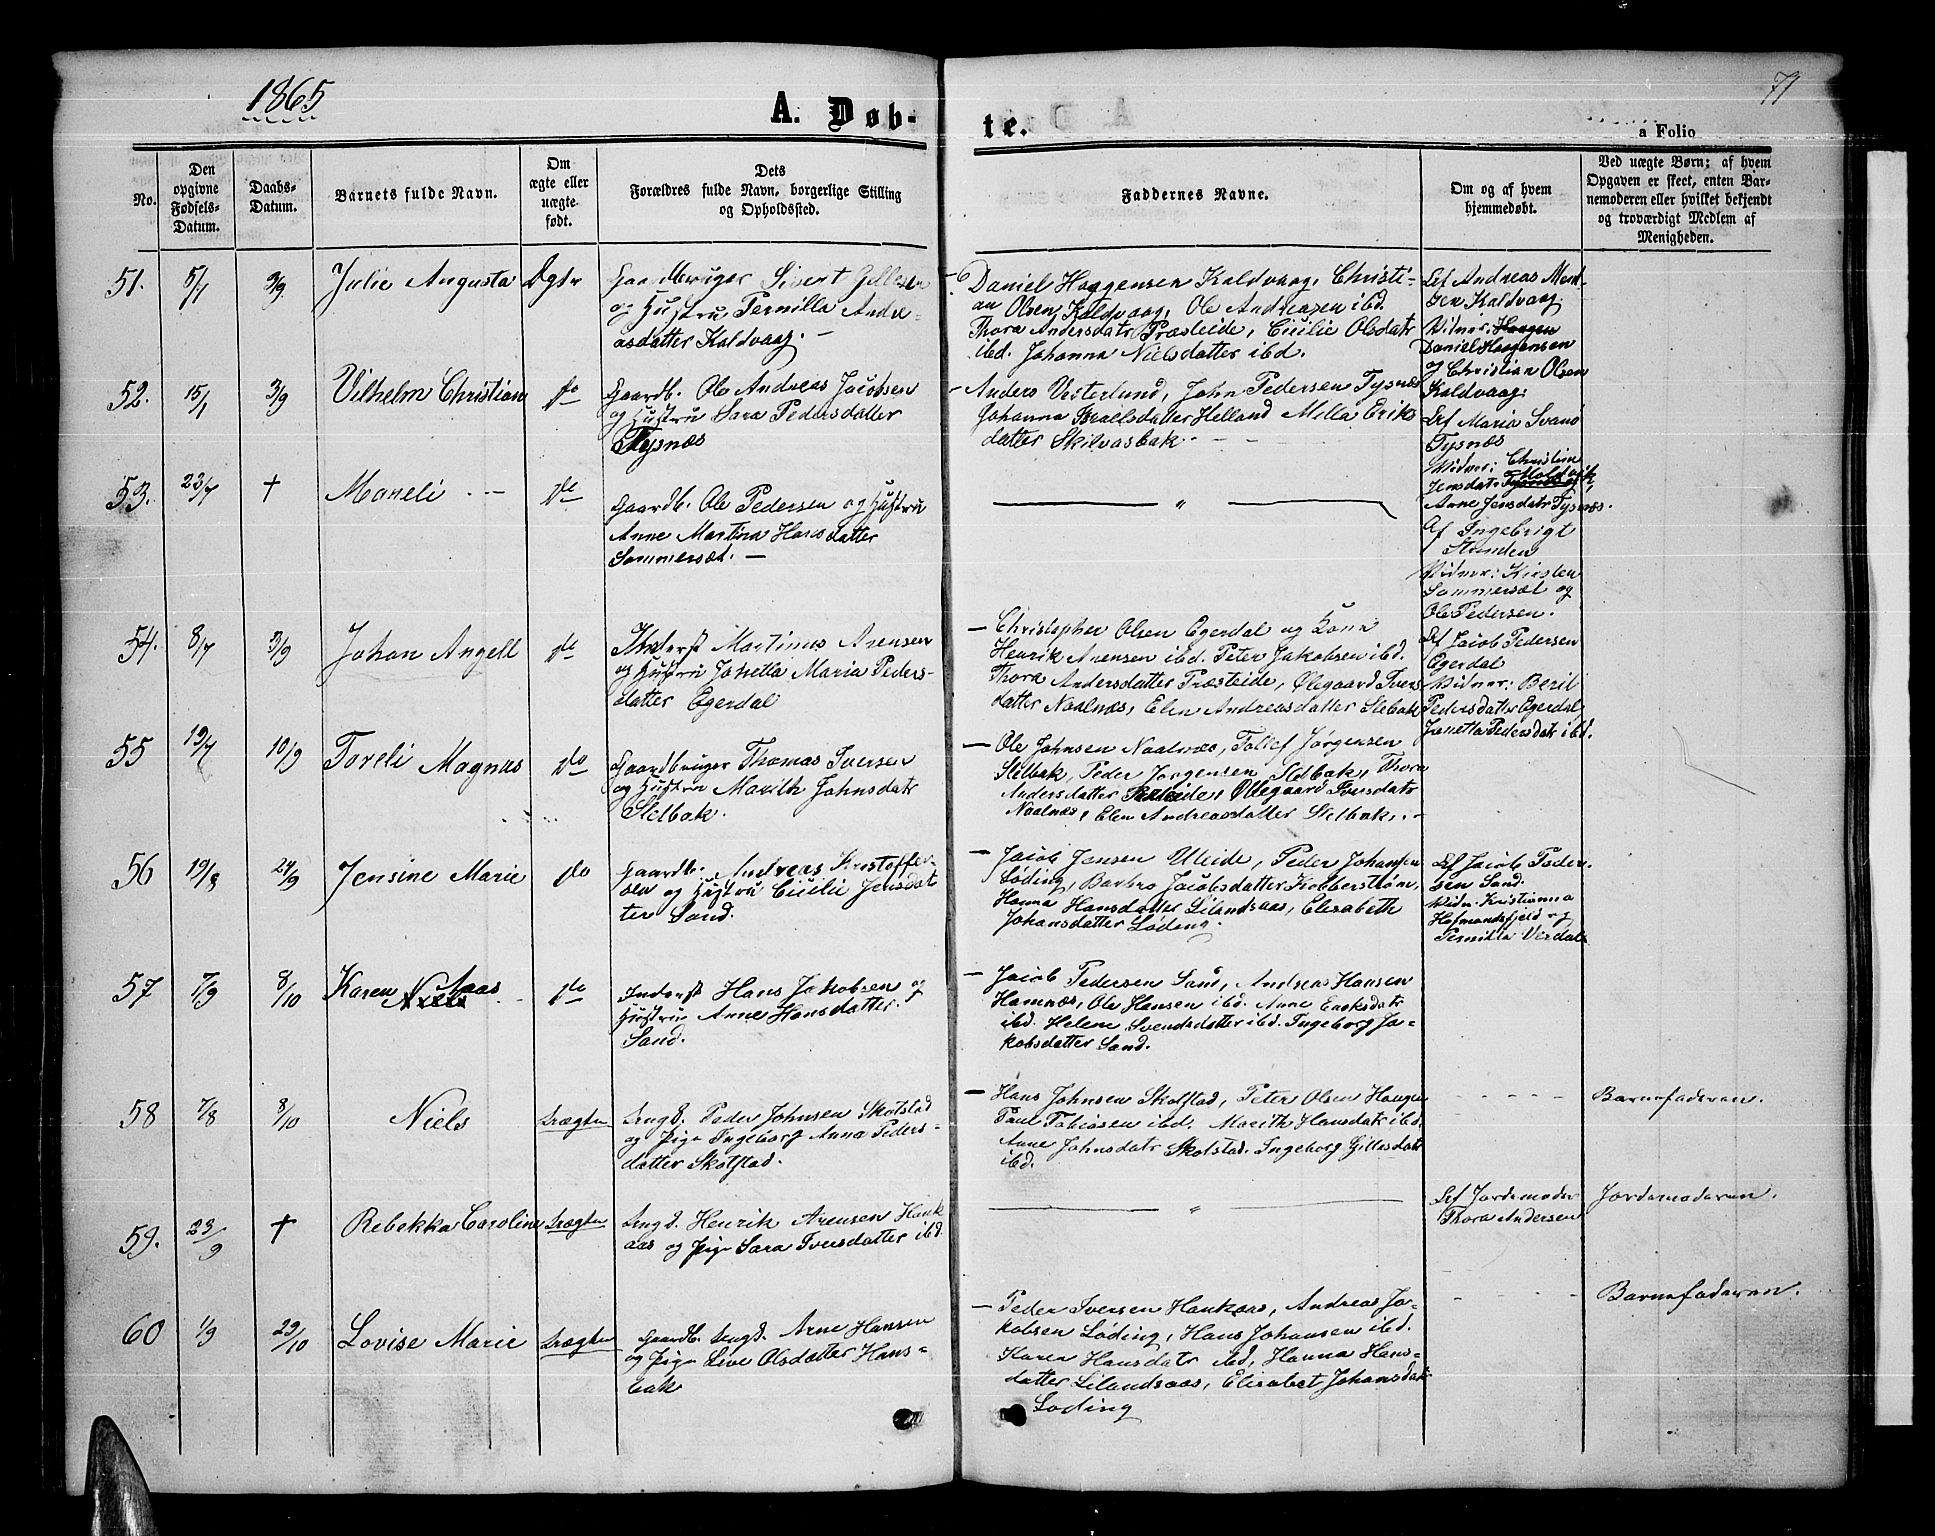 1865
A. Døb-
te.
79
a Folio
No.
Den
opgivne
Fødsels-
Datum.
Daabs-
Datum.
Barnets fulde Navn.
Om
ægte eller
uægte
født.
Dets
Forældres fulde Navn, borgerlige Stilling
og Opholdssted.
Faddernes Navne.
Om og af hvem
hjemmedøbt.
Ved uægte Børn; af hvem
Opgaven er skeet, enten Bar-
nemoderen eller hvilket bekjendt
og troværdigt Medlem af
Menigheden.
51.
3/9
Julie Augusta
Ægte
Gaardbruger Sivert
og Hustru Pernilla Andre-
asdatter Kaldvaag. —
Daniel Haagensen Kaldvaag, Christi-
an Olsen Kaldvaag, Ole Andreasen ibd.
Thora Andersdatr Præsteide, Cicilie Olsdatr
ibd. Johanna Nielsdatter ibd.
Af Andreas
Kaldvaag.
Vidner:
Daniel Haagensen
og Christian Olsen
Kaldvaag.
52.
15/1
3/9
Vilhelm Christian
do
Gaardb. Ole Andreas Jacobsen
og Hustru Sara Pedersdatter
Tysnæs
— Anders Vesterlund, John Pedersen Tysnæs
Johanna Israelsdatter Helland Milla Eriks
datter Skilvasbak.
Af Maria Svanø
Tysnæs
Vidner: Christian
Jensdatr
Anne Jensdatr Tysnæs.
53.
23/7
†
Maneli
do
Gaardb. Ole Pedersen og Hustru
Anne Martina Hansdatter
Sommersæt. —
"
Af Ingebrigt
Vidner: Kirsten
Sommersæt og
Ole Pedersen.
54.
8/7
3/9
Johan Angell
do
Inderst Martinus Arensen
og Hustru Janetta Maria Peders-
datter Egerdal
— Christopher Olsen Egerdal og Kona
Henrik Arensen ibd. Peter Jakobsen ibd.
Thora Andersdatter Præsteide, Olegaard Ivers
datter Naalnæs, Elen Andreasdatter Stelbak
Af Jacob Pedersen
Egerdal
Vidner: Beril
Pedersdatter Egerdal
Janetta Pedersdatr ibd.
55
19/7
10/9
Toreli Magnus
do
Gaardbruger Thomas Iversen
og Hustru Marith Johnsdatr
Stelbak.
— Ole Johnsen Naalnæs, Tollef Jørgensen
Stelbak, Peder Jørgensen Stelbak, Thora
Andersdatter Præsteide, Ollegaard Iversdatr
Naalnæs, Elen Andreasdatter Stelbak.
56
19/8
24/9
Jensine Marie
do
Gaardb. Andreas Kristoffer-
sen og Hustru Cicilie Jensdat
ter Sand.
— Jacob Jensen Uleide, Peder Johansen
Løding, Barbro Jacobsdatter Kobberstrøm,
Hanna Hansdatter Lilandsaas, Elisabeth
Johansdatter Løding.
Af Jacob Peder-
sen Sand.
Vidn. Kristianna
Hofmandsfjeld og
Pernilla Verdal
57
7/9
8/10
Karen Aaas
do
Inderst Hans Jakobsen og
Hustru Anne Hansdatter.
Sand.
— Jacob Pedersen Sand, Andreas Hansen
Hamnæs, Ole Hansen ibd. Anne Eriksdatr
ibd. Helene Svendsdatter ibd. Ingeborg Ja-
kobsdatter Sand.
58
7/8
8/10
Niels
Uægten
Ungd. Peder Johnsen Skotstad
og Pige Ingeborg Anna Peders-
datter Skotstad.
— Hans Johnsen Skotstad, Peter Olsen Haugen
Paul Tobiasen ibd. Marith Hansdatr ibd.
Anne Johnsdatr Skotstad. Ingeborg Gillesdatr
ibd.
Barnefaderen.
59.
23/9
†
Rebekka Caroline
Uægten
Ungd. Henrik Arensen Hauk
aas og Pige Sara Iversdatter ibd.
"
Af Jordemoder
Thora Andersen
Jordemoderen.
60
1/9
29/10
Lovise Marie
Uægten
Gaardb. Ungd. Arne Hansen
og Pige Live Olsdatter Hans-
bak
— Peder Iversen Haukaas, Andreas Ja-
kobsen Løding, Hans Johansen ibd.
Karen Hansdatr ibd, Hanna Hans-
datter Lilandsaas, Elisabet Johansdatr
Løding
Barnefaderen.